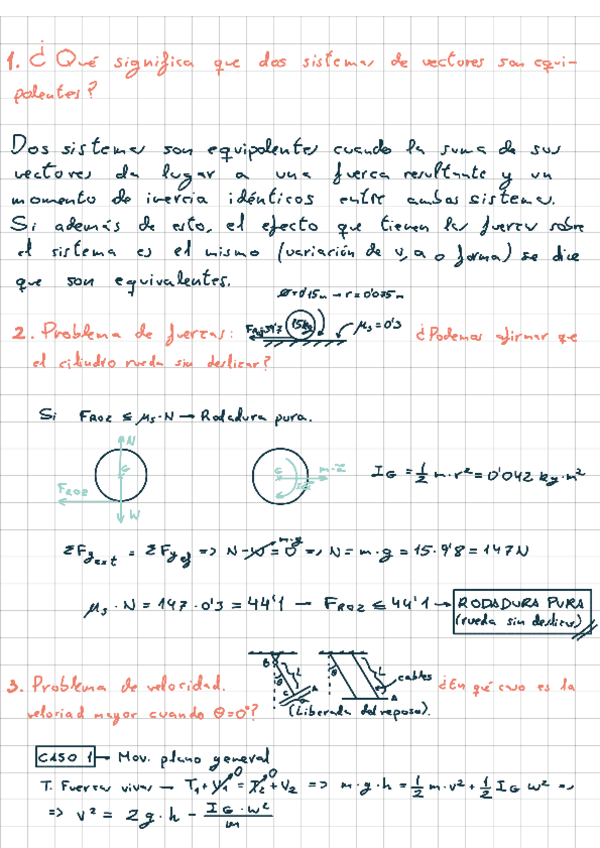 1. ¿Qué significa que dos sistemas de vectores son equi-
polentes?
Dos sistemas son equipolentes cuando la suma de sus
vectores da lugar a una fuerza resultante y un
momento de inercia idénticos entre ambos sistemas.
Si además de esto, el efecto que tienen las fuerzas sobre
el sistema es el mismo (variación de v, a o forma) se dice
que son equivalentes.
Ø=0'15m → r=0'075m
2. Problema de fuerzas: 15kg μs=0'3 ¿Podemos afirmar que
el cilindro rueda sin deslizar?
Si FROZ ≤ μs·N → Rodadura pura.
N
G
FROZ
W
G
m·a
IG = 1/2 m·r² = 0'042 kg·m²
ΣFy ext = ΣFy ef => N-W = 0 => N = m·g = 15·9'8 = 147N
m·g
μs · N = 147 · 0'3 = 44'1 — FROZ ≤ 44'1 → RODADURA PURA
(rueda sin deslizar)
3. Problema de velocidad. B θ L C A θ L A cables ¿En qué caso es la
velociad mayor cuando θ=0º? (Liberada del reposo).
CASO 1 → Mov. plano general
T. Fuerzas vivas → T1 + V1 = T2 + V2 => m·g·h = 1/2 m·v² + 1/2 IG ω² =>
=> v² = 2g·h - IG·ω²/m